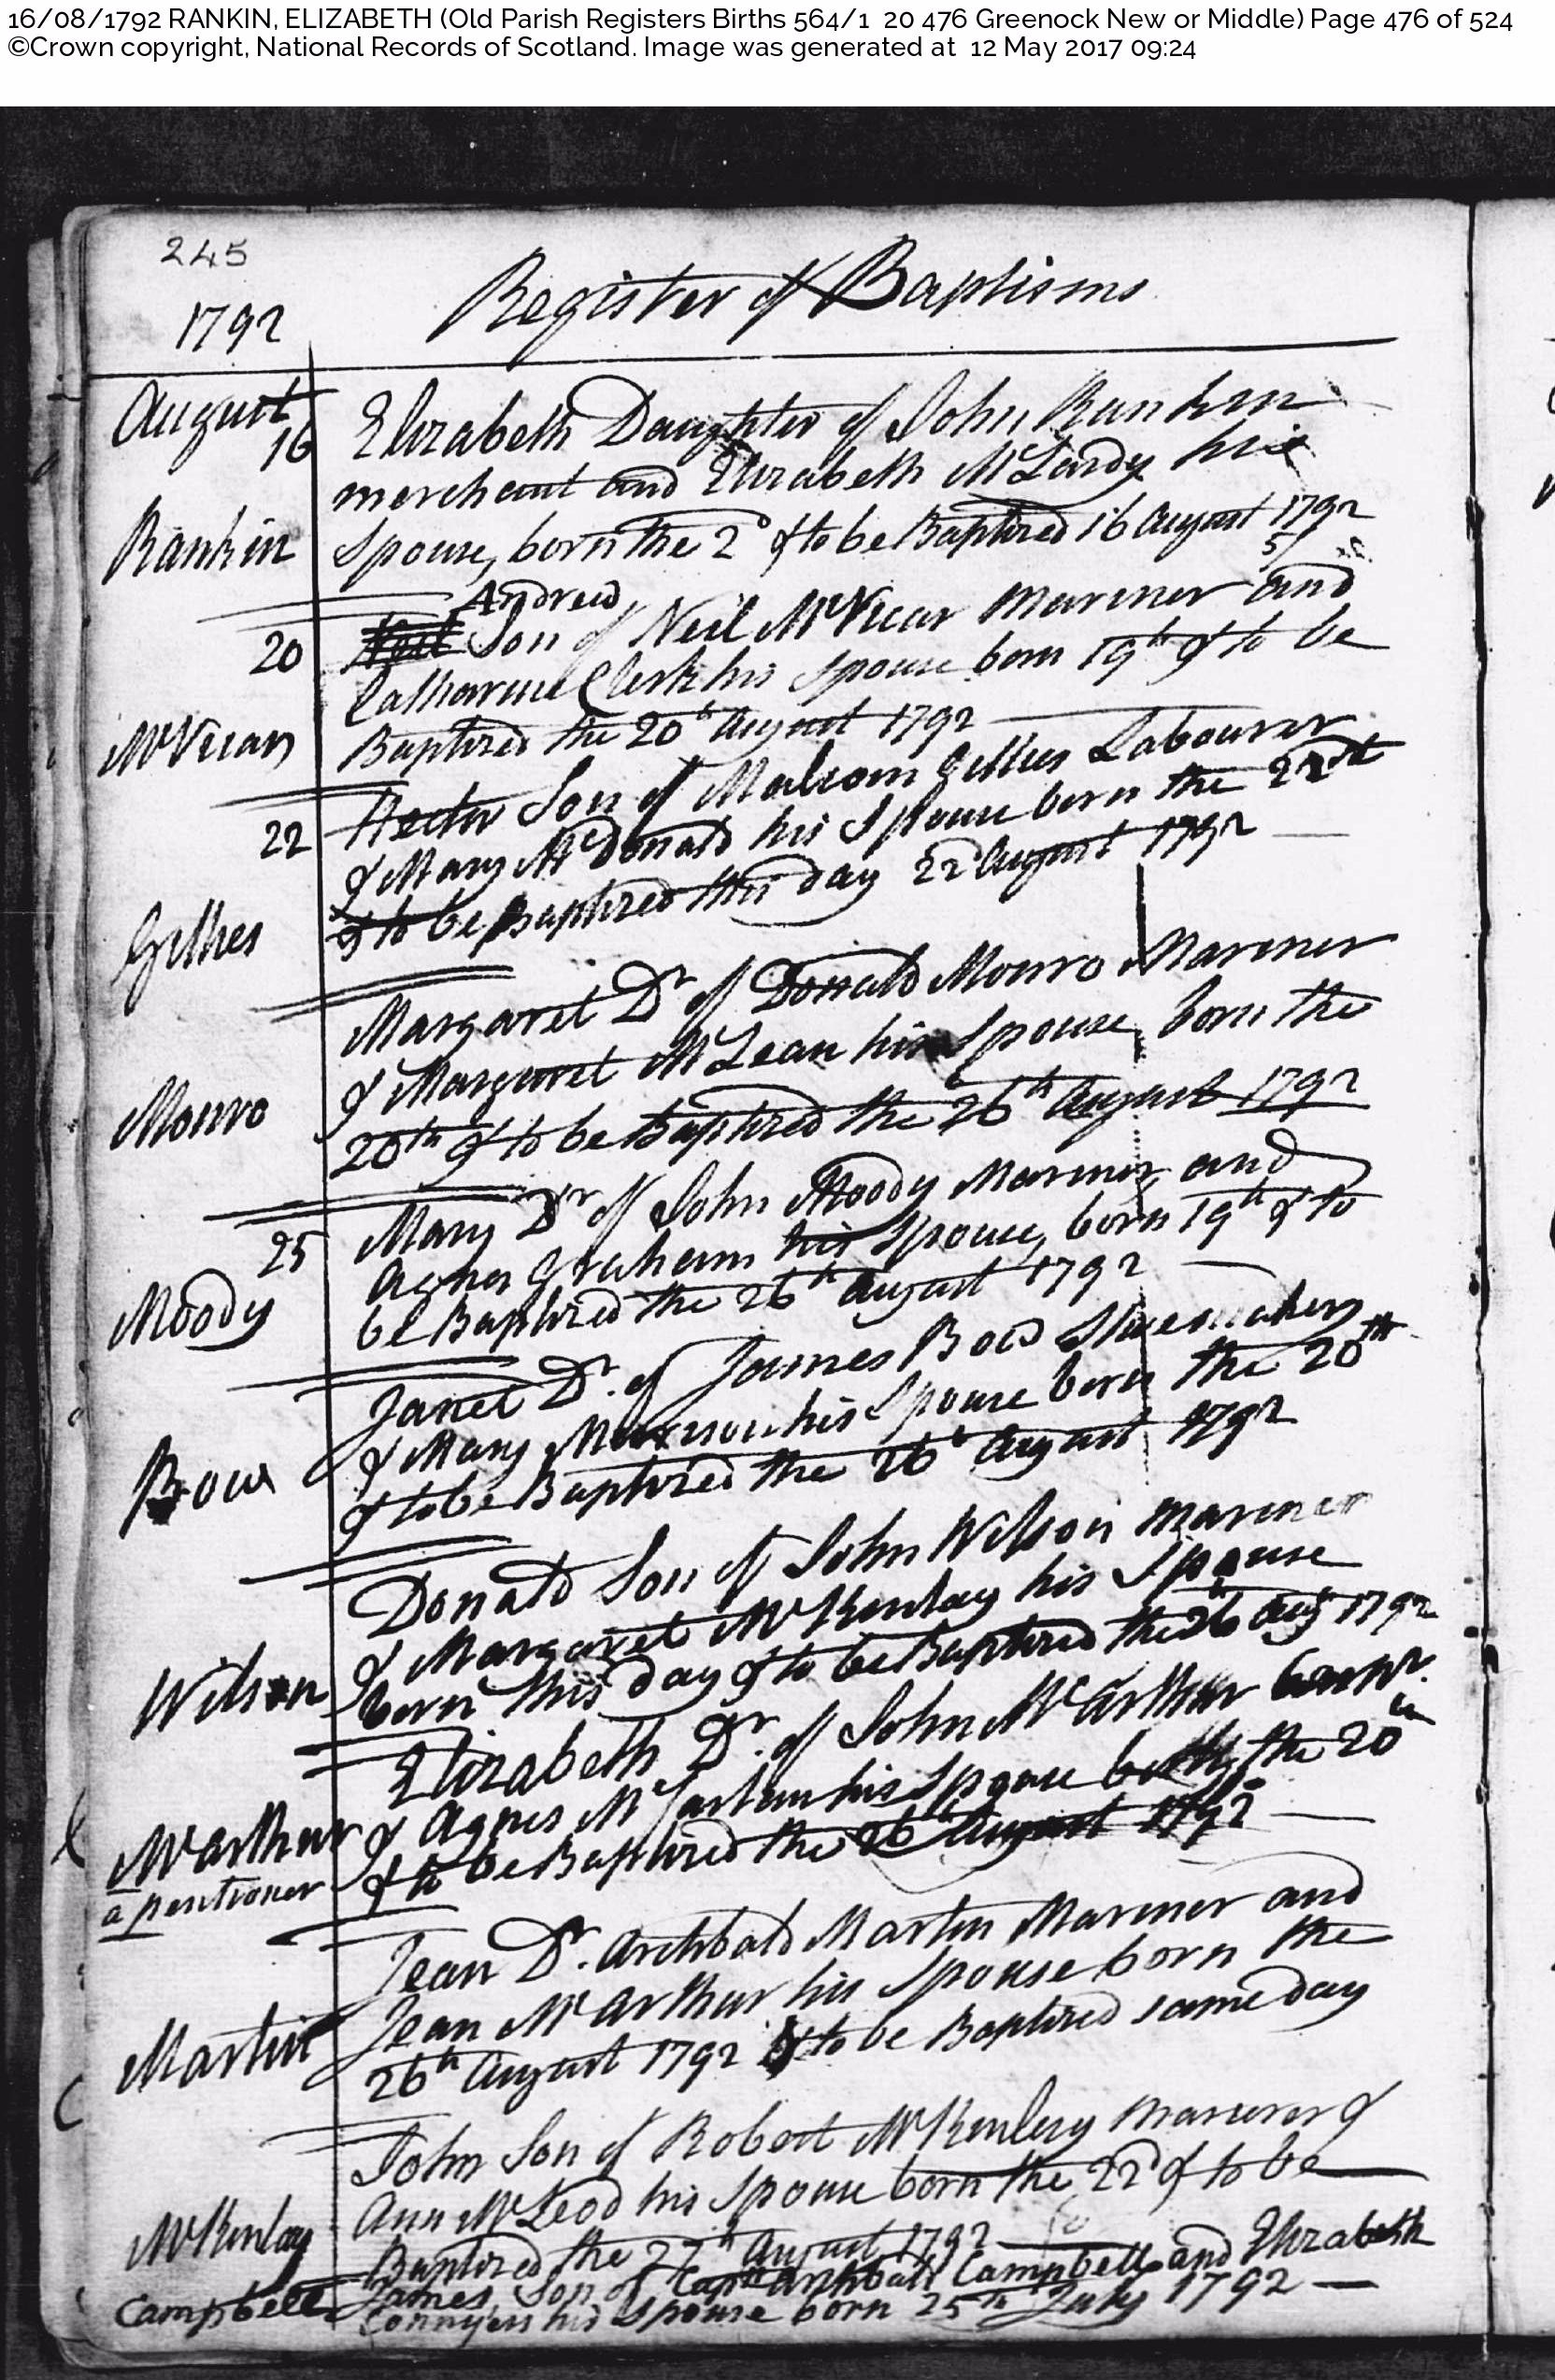 16/08/1792 RANKIN, ELIZABETH (Old Parish Registers Births 564/1 20 476 Greenock New or Middle) Page 476 of 524
©Crown copyright, National Records of Scotland. Image was generated at 12 May 2017 09:24
245
1792
Register of Baptisms
August
16
Elizabeth Daughter of John Rankin
merchant and Elizabeth McLardy his
Rankin
Spouse, born the 2d & to be Baptized 16 August 1792
Andrew
20
Neil Son of Neil McVicar Mariner and
Catharine Clerk his Spouse born 19th & to be
McVicar
Baptized the 20th August 1792
22
Hector Son of Malcom Gillies Labourer
& Mary McDonald his Spouse born the
& to be Baptized this day 22d August 1792
Gillies
Margaret Dr of Donald Monro Mariner
& Margaret McLean his Spouse, born the
Monro
20th & to be Baptized the 26th August 1792
25
Mary Dr of John Moody Mariner and
Agnes Graham his Spouse, born 19th & to
Moody
be Baptized the 26th August 1792
Janet Dr. of James Bow Shoemaker
& Mary his Spouse born the 20th
Bow
& to be Baptized the 26th August 1792
Donald Son of John Wilson mariner
& Margaret McKinlay his Spouse
Wilson
born this day & to be Baptized the 26 Augt 1792
Elizabeth Dr. of John McArthur
& Agnes McFarlan his Spouse the 20th
McArthur
& to be Baptized the 26th August 1792
a pentioner
Jean Dr. Archbald Martin Mariner and
Jean McArthur his Spouse born the
Martin
26th August 1792 & to be Baptized same day
John Son of Robert McKinlay mariner &
Ann McLeod his Spouse born the 22d & to be
McKinlay
Baptized the 27th August 1792
Campbell
James Son of Capt Archbald Campbell and Elizabeth
his Spouse born 25th July 1792